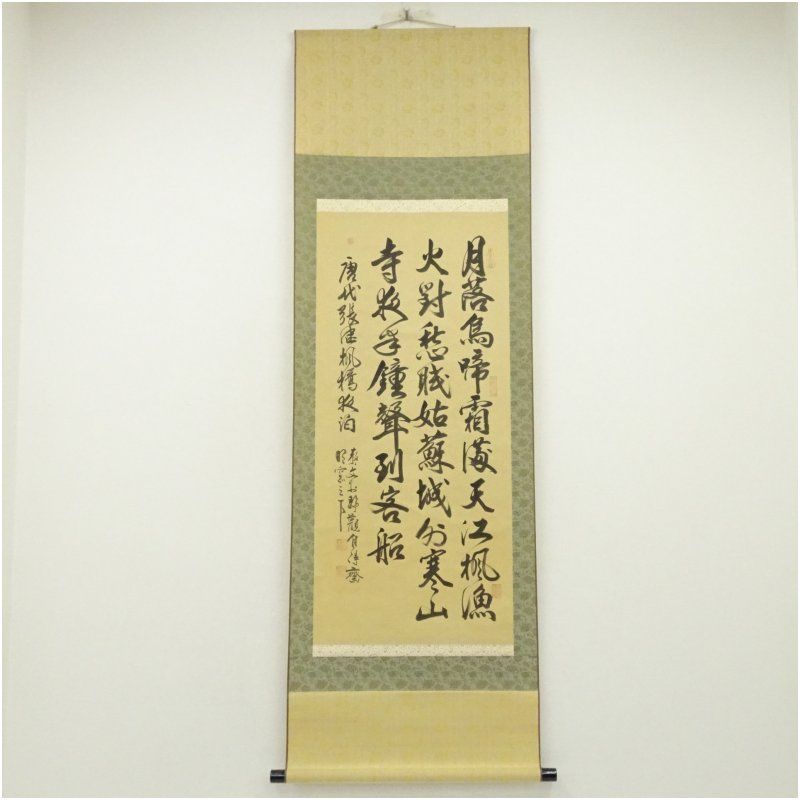 月落烏啼霜滿天江楓漁
火對愁眠姑蘇城外寒山
寺夜半鐘聲到客船
唐代張继楓橋夜泊